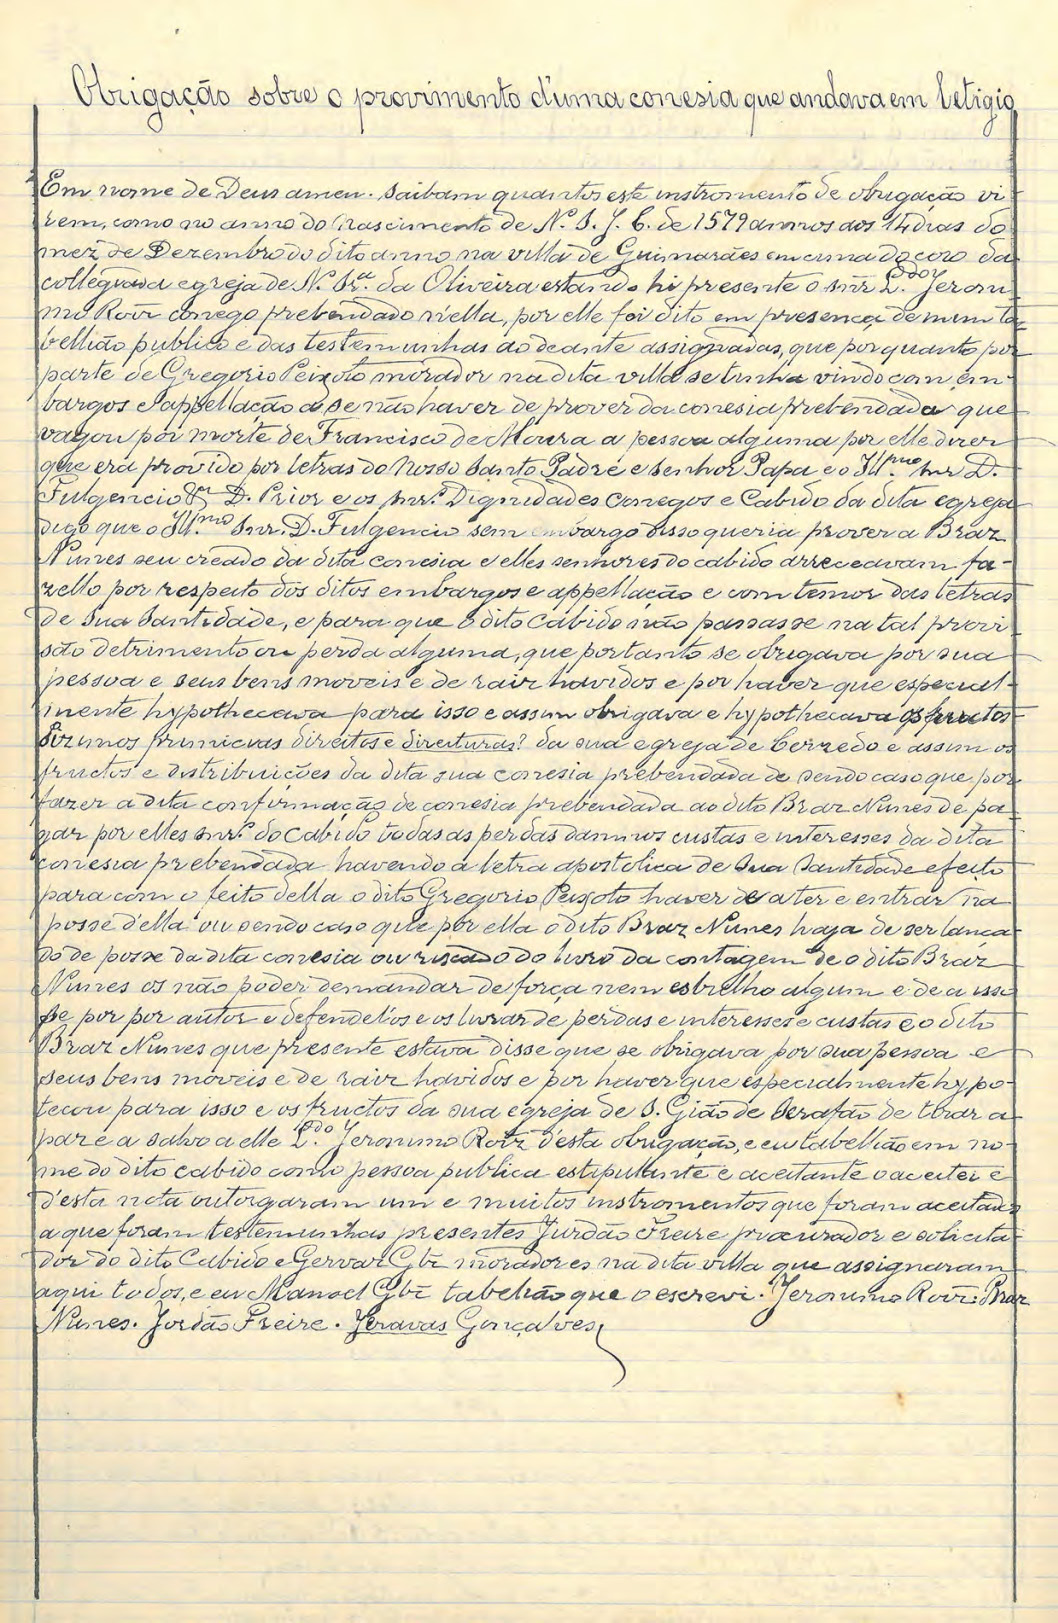 Obrigação sobre o provimento d'uma conesia que andava em letigio
Em nome de Deus amen. Saibam quantos este instromento de obrigação vi-
rem, como no anno do Nascimento de N. S. J. C. de 1579 annos aos 14 dias do
mez de Dezembro do dito anno na villa de Guimarães em cima do coro da
collegiada egreja de N. Sr.ª da Oliveira estando hi presente o snr L.do Jeroni-
mo Roiz conego prebendado n'ella, por elle foi dito em presença de mim ta-
bellião publico e das testemunhas ao deante assignadas, que porquanto por
parte de Gregorio Peixoto morador na dita villa se tinha vindo com em-
bargos e appellação a se não haver de prover da conesia prebendada que
vagou por morte de Francisco de Moura a pessoa alguma por elle dizer
que era provido por letras do Nosso Santo Padre e Senhor Papa e o Ill.mo Snr D.
Fulgencio D. Prior e os Snr.s Dignidades conegos e Cabido da dita egreja
digo que o Ill.mo Snr. D. Fulgencio sem embargo disso queria prover a Braz
Nunes seu creado da dita conesia e elles senhores do cabido arreceavam fa-
zello por respeito dos ditos embargos e appellação e com temor das letras
de Sua Santidade, e para que o dito Cabido não passasse na tal provi-
são detrimento ou perda alguma, que portanto se obrigava por sua
pessoa e seus bens moveis e de raiz havidos e por haver que especial-
mente hypothecava para isso e assim obrigava e hypothecava os fructos
dizimos primicias direitos e direituras? da sua egreja de Cerzedo e assim os
fructos e distribuições da dita sua conesia prebendada de sendo caso que por
fazer a dita confirmação de conesia prebendada ao dito Braz Nunes de pa-
gar por elles snr.s do Cabido todas as perdas damnos custas e interesses da dita
conesia prebendada havendo a letra apostolica de Sua Santidade efeito
para com o feito della o dito Gregorio Peixoto haver de a ter e entrar na
posse d'ella ou sendo caso que por ella o dito Braz Nunes haja de ser lança-
do de posse da dita conesia ou riscado do livro da contagem de o dito Braz
Nunes os não poder demandar de força nem esbulho algum e de a isso
se por por autor e defendel'os e os livrar de perdas e interesses e custas e o dito
Braz Nunes que presente estava disse que se obrigava por sua pessoa e
seus bens moveis e de raiz havidos e por haver que especialmente hypo-
tecou para isso e os fructos da sua egreja de S. Gião de Serafão de tirar a
paz e a salvo a elle L.do Jeronimo Roiz d'esta obrigação, e eu tabellião em no-
me do dito cabido como pessoa publica estipulante e aceitante o aceitei e
d'esta nota outorgaram um e muitos instromentos que foram aceitados
a que foram testemunhas presentes Jurdão Freire procurador e solicita-
dor do dito Cabido e Gervaz Glz moradores na dita villa que assignaram
aqui todos, e eu Manoel Glz tabelião que o escrevi. Jeronimo Roiz. Braz
Nunes. Jordão Freire. Jeravas Gonçalves